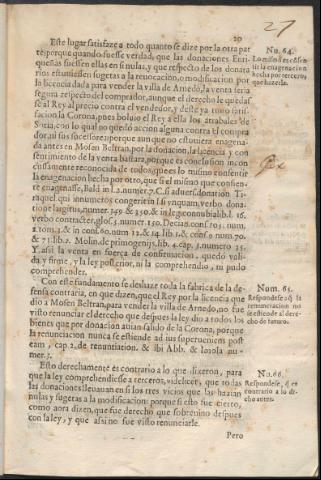 27
20
Este lugar satisfaze a todo quanto se dize por la otra parte: porque quando fuesse verdad, que las donaciones Enriqueñas fuessen ellas en si nulas, y que respecto de los donatarios estuuiessen sugetas a la reuocacion, o modificacion por
la licencia dada para vender la villa de Arnedo, la venta seria
segura respecto del comprador, aunque el derecho le quedasse al Rey al precio contra el vendedor, y deste ya tomò satisfacion la Corona, pues boluio el Rey a ella los arrabales de
Soria, con lo qual no quedò accion alguna contra el comprador, ni sus sucessores: porque aunque no estuuiera enagenada antes en Mosen Beltran, por la donacion, la licencia y consentimiento de la venta bastara, porque es conclusion inconcussamente reconocida de todos, que es lo mismo consentir
la enagenacion hecha por otro, que si el mismo que consiente enagenasse, Bald. in l. 2. numer. 7. C. si aduers. donation. Tiraquel. qui innumeros congerit in l. si vnquam, verbo donatione largitus, numer. 359. & 350. & in leg. connubial. l. 16.
verbo contracter, glos. 1. numer. 130. Decian. cons. 103. num.
2. tom. 3. & in cons. 60. num. 12. & 14. lib. 1. & cons. 70. num. 70.
& 71. lib. 2. Molin. de primogenijs, lib. 4. cap. 3. numero 25.
Y assi la venta en fuerça de confirmacion, quedò valida, y firme, y la ley posterior, ni la comprehendio, ni pudo
comprehender.
Con este fundamento se deshaze toda la fabrica de la defensa contraria, en que dizen, que el Rey por la licencia que
dio a Mosen Beltran, para vender la villa de Arnedo, no fue
visto renunciar el derecho que despues la ley dio a todos los
bienes que por donacion auian salido de la Corona, porque
la renunciacion nunca se estiende ad ius superueniens post
eam, cap. 2. de renuntiation. & ibi Abb. & Loiola numer. 3.
Esto derechamente es contrario a lo que dixeron, para
que la ley comprehendiesse a terceros, videlicet, que todas
las donaciones lleuauan en si los tres vicios que las hazian
nulas y sugetas a la modificacion: porque si esto fue cierto,
como aora dizen, que fue derecho que sobreuino despues
con la ley, y que assi no fue visto renunciarle.
Pero
Nu. 64.
Lo mismo es consentir la enagenacion
hecha por tercero, que hazerla.
Num. 65.
Respondese a q̃ la
renunciacion no
se estiende al derecho de futuro.
Nu. 66.
Respondese, q̃ es
contrario a lo dicho antes.